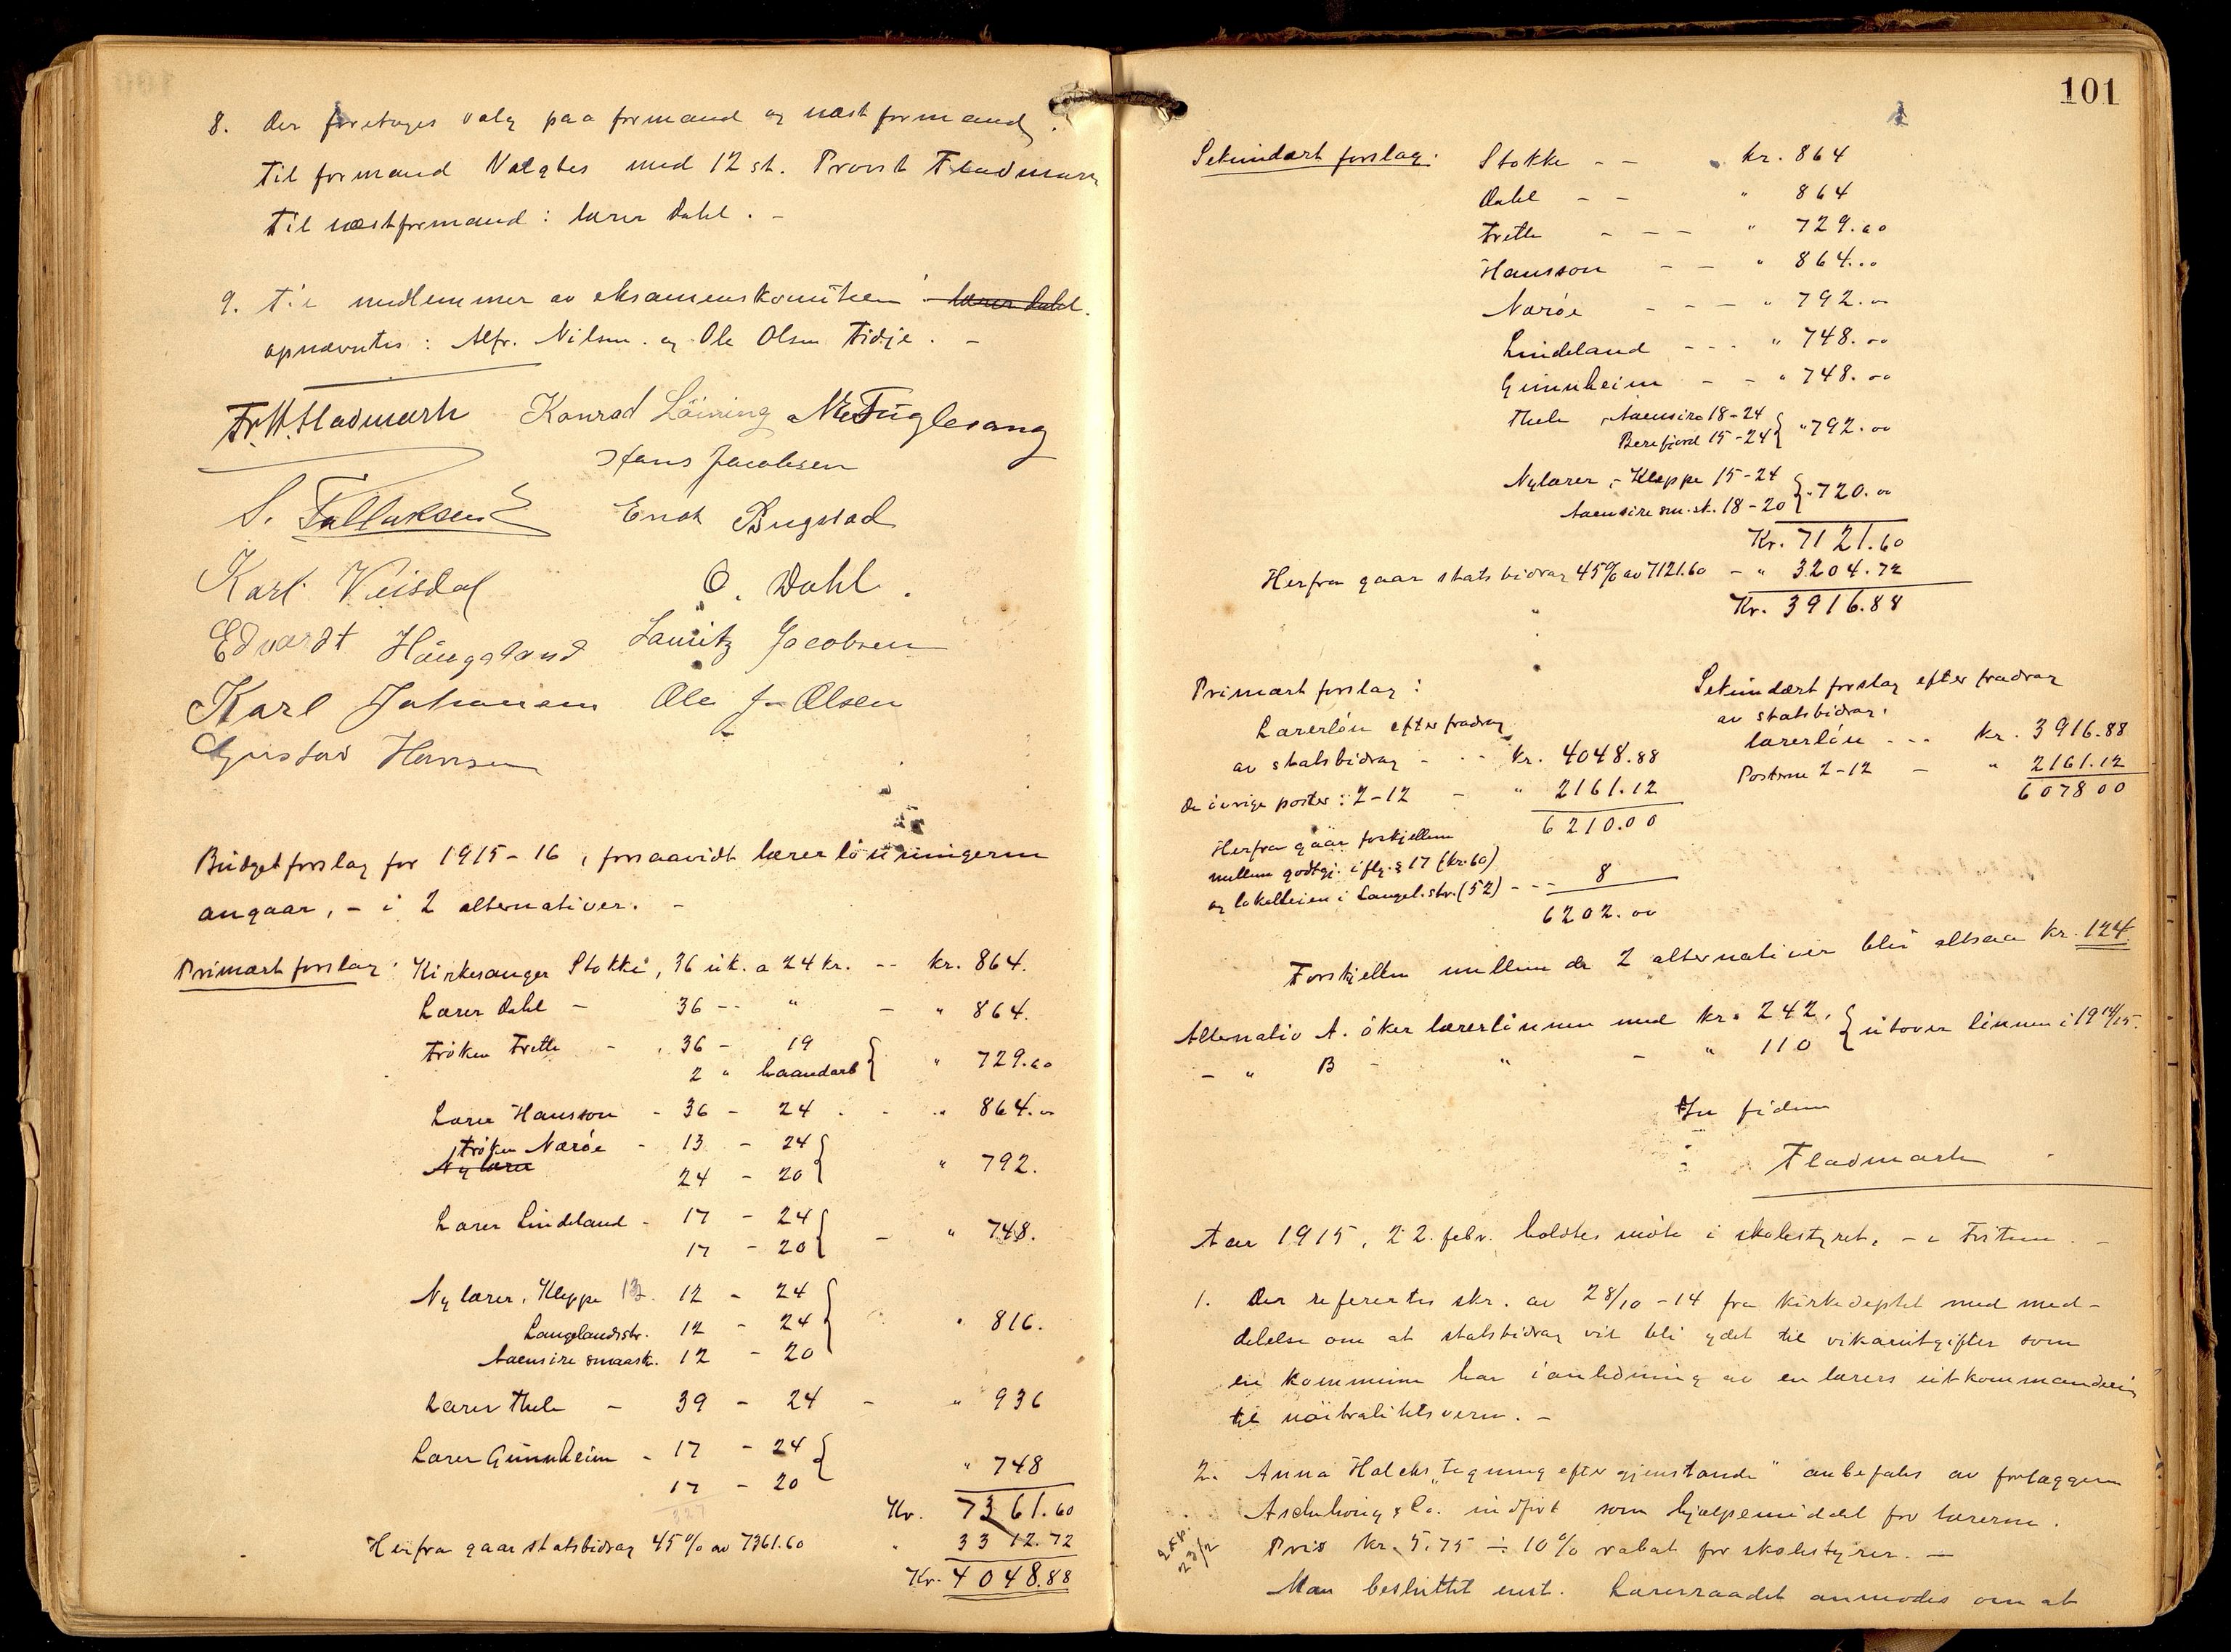 8. Der foretages valg paa formand og næstformand.
Til formand Valgtes med 12 st. Provst Fladmark
Til næstformand: lærer Dahl. -
9. Til medlemmer av eksamenskomiteen lærer Dahl.
opnævntes: Alfr. Nilsen. og Ole Olsen Tidje. -
Fr. W. Fladmark Konrad Löining Fuglesang
Hans Jacobsen
S. Tallaksen Enok Bugstad
Karl Veisdal O. Dahl.
Edvardt Haugeland Lauritz Jacobsen
Karl Johansen Ole J. Olsen
Gustav Hansen
Budgetforslag for 1915-16, forsaavidt lærerlönningerne
angaar, - i 2 alternativer. -
Primært forslag: Kirkesanger Stokke, 36 uk. a 24 kr. -- kr. 864.
Lærer Dahl - 36 -- " - " 864.
Fröken Fretle - 36 - 19
2 " haandarb } " 729.60
Lærer Hansson - 36 - 24 - " 864.00
Fröken Naröe - 13 - 24
Ny lærer 24 - 20 } " 792.
Lærer Lindeland - 17 - 24
17 - 20 } - " 748.
Ny lærer, Kleppe 12 - 24
Langelandsstr. 12 - 24
Aaensire smaask. 12 - 20 } " 816.
Lærer Thele - 39 - 24 - " 936
Lærer Gunnheim - 17 - 24
17 - 20 } " 748
Kr. 7361.60
Herfra gaar statsbidrag 45% av 7361.60 " 3312.72
Kr. 4048.88
101
Sekundært forslag: Stokke -- kr. 864
Dahl -- " 864
Fretle --- " 729.60
Hansson -- " 864.00
Naröe --- " 792.00
Lindeland --- " 748.00
Gunnheim -- " 748.00
Thele, Aaensire 18-24
Berefjord 15-24 } " 792.00
Ny lærer, - Kleppe 15-24
Aaensire sm.sk. 18-20 } " 720.00
Kr. 7121.60
Herfra gaar statsbidrag 45% av 7121.60 - " 3204.72
Kr. 3916.88
Primært forslag:
Lærerlön efter fradrag
av statsbidrag - - - kr. 4048.88
De övrige poster: 2-12 - " 2161.12
6210.00
Herfra gaar forskjellen
mellem godtgj. iflg. § 17 (kr. 60)
og lokalleien i Langel.str. (52) --- 8
6202.00
Sekundært forslag efter fradrag
av statsbidrag.
lærerlön --- kr. 3916.88
Posterne 2-12 - " 2161.12
6078 00
Forskjellen mellem de 2 alternativer blir altsaa kr. 124.
Alternativ A. öker lærerlönnen med kr. 242.
- " B - " - " 110 } utover lönnen i 1914/15.
In fidem
Fladmark
Aar 1915, 22. febr. holdtes möte i skolestyret, - i Fistern. -
1. Der refertes skr. av 28/10 - 14 fra kirkedeptet med med-
delelse om at statsbidrag vil bli ydet til vikarutgifter som
en kommune har i anledning av en lærers utkommandering
til nöitralitetsvern. -
2. Anna Holcks "tegning efter gjenstande" anbefales av forlæggeren
Aschehoug & Co. indfört som hjælpemiddel for lærerne.
Pris kr. 5.75 ÷ 10% rabat for skolestyrer. -
Exp. 23/2
Man besluttet enst. Lærerraadet anmodes om at